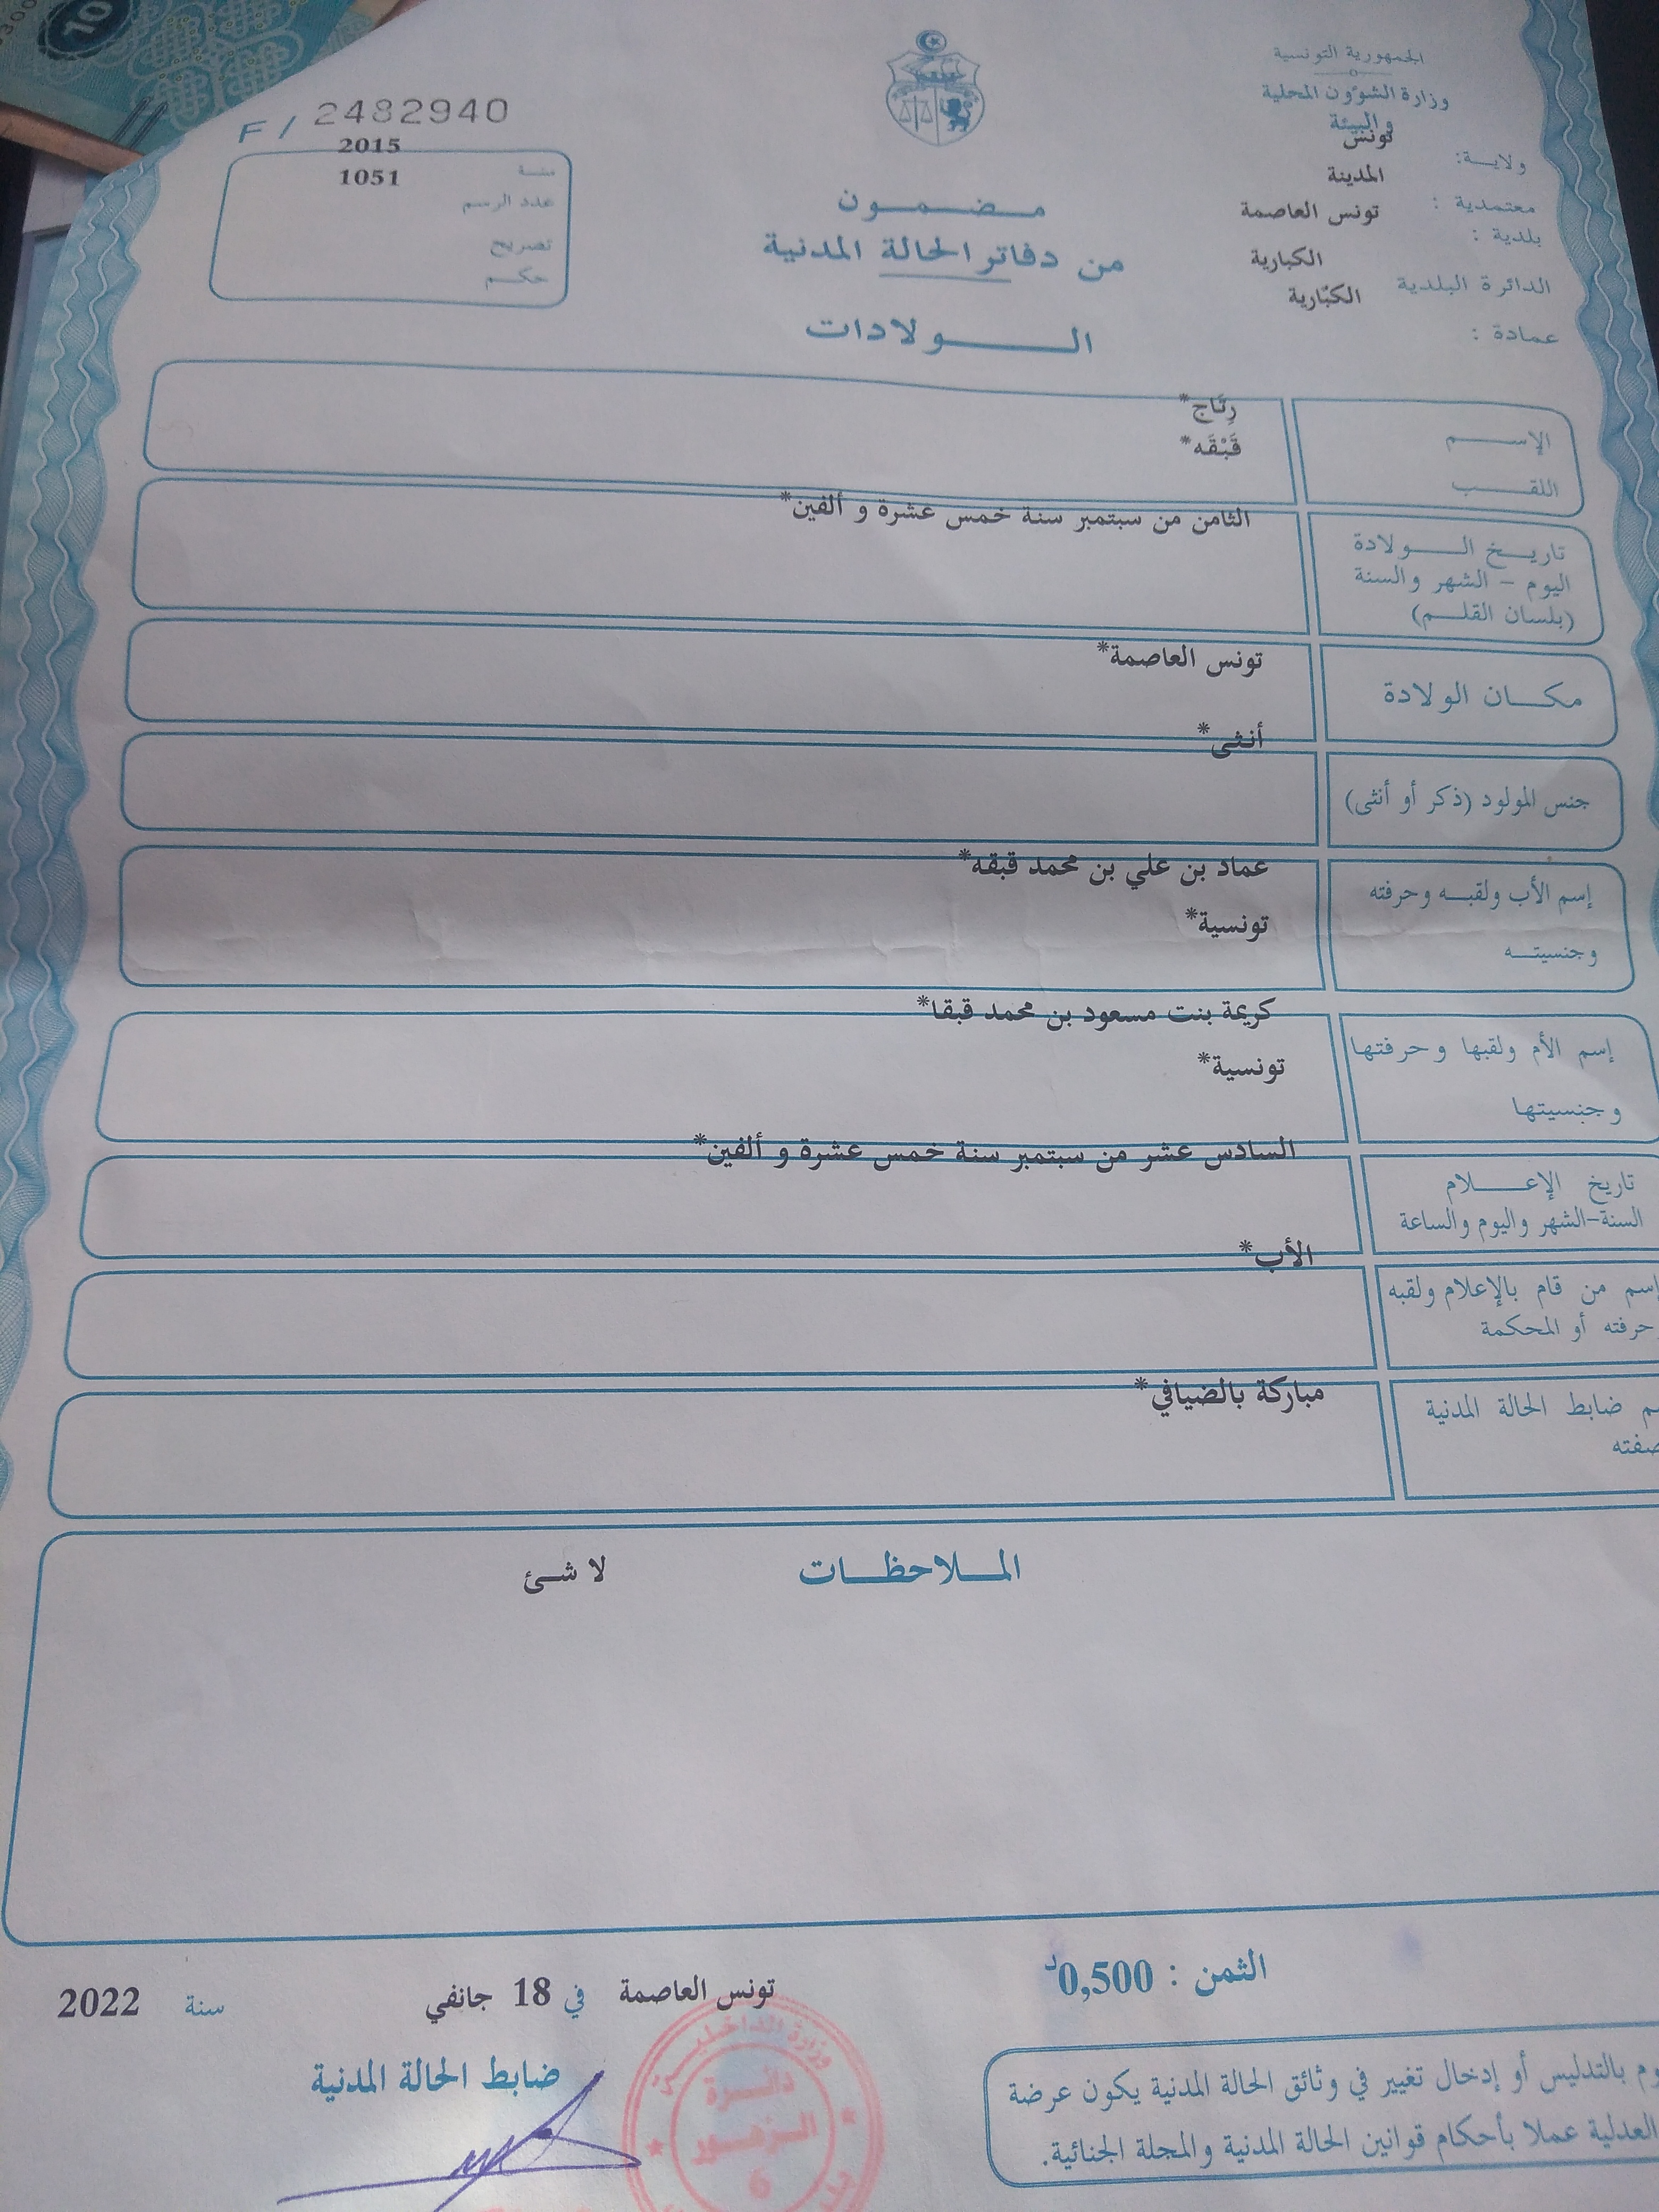 الجمهورية التونسية
وزارة الشؤون المحلية
والبيئة
ولاية: تونس
معتمدية : المدينة
بلدية : تونس العاصمة
الدائرة البلدية الكبارية
عمادة : الكبّارية
F / 2482940
سنة 2015
عدد الرسم 1051
تصريح
حكم
مضمون
من دفاتر الحالة المدنية
الولادات
الإسم رِتَاج*
اللقب قَبْقَه*
تاريخ الولادة
اليوم - الشهر والسنة
(بلسان القلم)
الثامن من سبتمبر سنة خمس عشرة و ألفين*
مكان الولادة
تونس العاصمة*
جنس المولود (ذكر أو أنثى)
أنثى*
إسم الأب ولقبه وحرفته
وجنسيته
عماد بن علي بن محمد قبقه*
تونسية*
إسم الأم ولقبها وحرفتها
وجنسيتها
كريمة بنت مسعود بن محمد قبقا*
تونسية*
تاريخ الإعلام
السنة-الشهر واليوم والساعة
السادس عشر من سبتمبر سنة خمس عشرة و ألفين*
إسم من قام بالإعلام ولقبه
حرفته أو المحكمة
الأب*
ضابط الحالة المدنية
صفته
مباركة بالضيافي*
الملاحظات
لا شئ
الثمن : 0,500د
تونس العاصمة في 18 جانفي سنة 2022
ضابط الحالة المدنية
وزارة الداخلية
دائرة
الزهور
6
بالتدليس أو إدخال تغيير في وثائق الحالة المدنية يكون عرضة
العدلية عملا بأحكام قوانين الحالة المدنية والمجلة الجنائية.